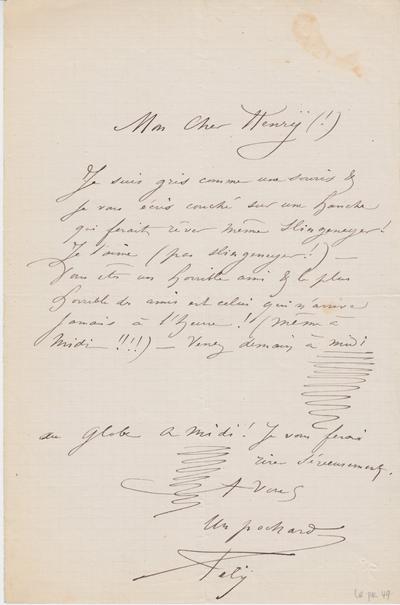 Mon Cher Henrÿ (!)
Je suis gris comme une souris &
Je vous écris couché sur une hanche
qui ferait rêver même Slingeneyer !
Je l'aime (pas Slingeneyer !) —
Vous êtes un horrible ami & le plus
horrible des amis est celui qui n'arrive
jamais à l'heure ! (même a
midi !!!!) — Venez demain à midi
au Globe a midi ! Je vous ferai
rire sérieusement.
A vous
Un pochard
Fély
LE PR. 49